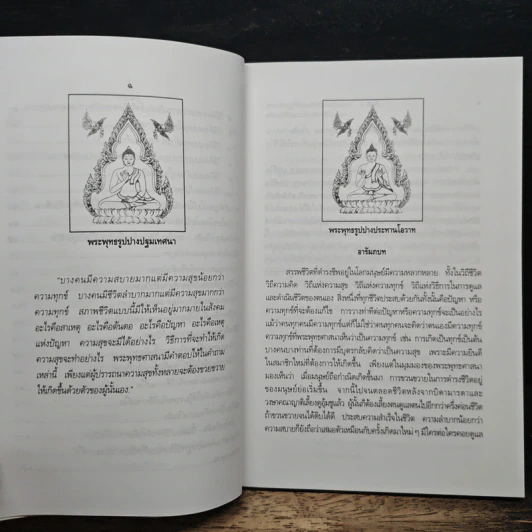 ๕
พระพุทธรูปปางปฐมเทศนา
"บางคนมีความสบายมากแต่มีความสุขน้อยกว่า
ความทุกข์ บางคนมีชีวิตลำบากมากแต่มีความสุขมากกว่า
ความทุกข์ สภาพชีวิตแบบนี้มีให้เห็นอยู่มากมายในสังคม
อะไรคือสาเหตุ อะไรคือต้นตอ อะไรคือปัญหา อะไรคือเหตุ
แห่งปัญหา ความสุขจะมีได้อย่างไร วิธีการที่จะทำให้เกิด
ความสุขจะทำอย่างไร พระพุทธศาสนามีคำตอบให้ในคำถาม
เหล่านี้ เพียงแต่ผู้ปรารถนาความสุขทั้งหลายจะต้องขวนขวาย
ให้เกิดขึ้นด้วยตัวของผู้นั้นเอง."
พระพุทธรูปปางประทานโอวาท
อารัมภบท
สรรพชีวิตที่ดำรงชีพอยู่ในโลกมนุษย์มีความหลากหลาย ทั้งในวิถีชีวิต
วิถีความคิด วิถีแห่งความสุข วิถีแห่งความทุกข์ วิถีแห่งวิธีการในการดูแล
และดำเนินชีวิตของตนเอง สิ่งหนึ่งที่ทุกชีวิตประสบด้วยกันทั้งนั้นคือปัญหา หรือ
ความทุกข์ที่จะต้องแก้ไข การวางท่าทีต่อปัญหาหรือความทุกข์จะเป็นอย่างไร
แม้ว่าคนทุกคนมีความทุกข์แต่ก็ไม่ใช่ว่าคนทุกคนจะคิดว่าตนเองมีความทุกข์
ความทุกข์ที่พระพุทธศาสนาเห็นว่าเป็นความทุกข์ เช่น การเกิดเป็นทุกข์เป็นต้น
บางคนบางท่านที่ต้องการมีบุตรกลับคิดว่าเป็นความสุข เพราะมีความยินดี
ในสมาชิกใหม่ที่ต้องการให้เกิดขึ้น เพียงแต่ในมุมมองของพระพุทธศาสนา
มองเห็นว่า เมื่อมนุษย์ถือกำเนิดเกิดขึ้นมา การขวนขวายในการดำรงชีวิตอยู่
ของมนุษย์ย่อมเริ่มขึ้น จากนี้ไปจนตลอดชีวิตหลังจากบิดามารดาและ
วงษาคณาญาติเลี้ยงดูอุ้มชูแล้ว ผู้นั้นก็ต้องเลี้ยงตนดูแลตนไปอีกกว่าครึ่งค่อนชีวิต
ถ้าขวนขวายจนได้ดิบได้ดี ประสบความสำเร็จในชีวิต ความลำบากน้อยกว่า
ความสบายก็ยังถือว่าเสมอตัวเหมือนกับครั้งเกิดมาใหม่ ๆ มีใครต่อใครคอยดูแล